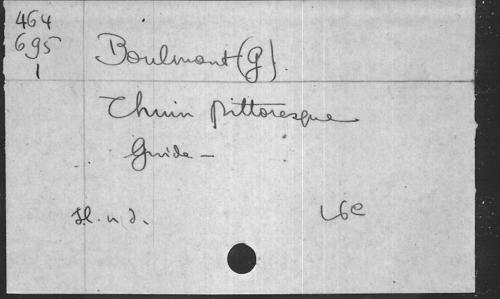 464
695
1
Boulmont (G)
Thuin pittoresque
Guide —
Sl. n d.